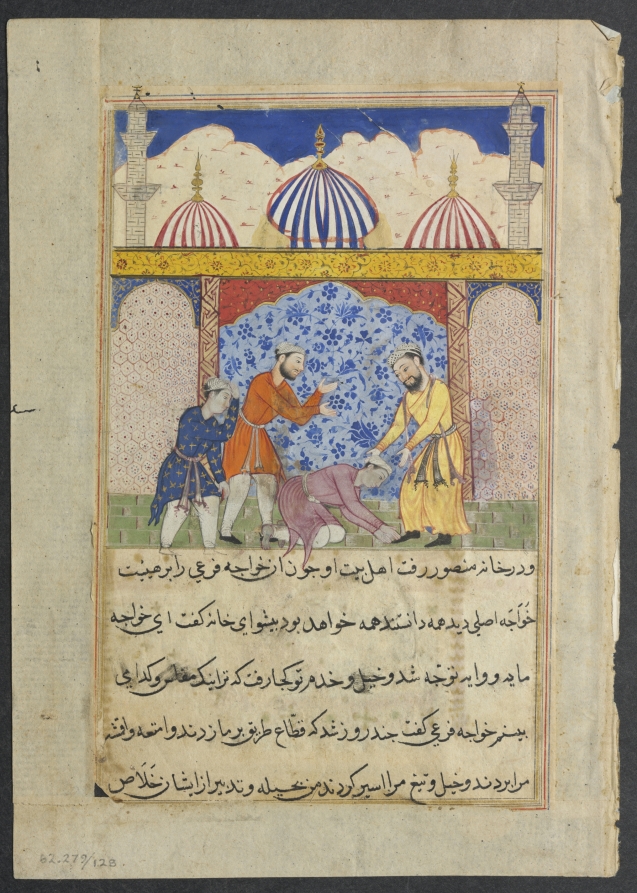 ودر خانه منصور رفت اهل بیت او جون از خواجه فرعی را بر هیئت
خواجه اصلی دیدهمه دانستند همه خواهد بود بیشوای خانه کفت ای خواجه
مایه و وایه توجه شد و خیل و خدم تو کجا رفت که ترا یک مفلس و کدای
بینم خواجه فرعی کفت جند روز شد که قطاع طریق بر ما زدند و امتعه واقشه
مرا بردند و خیل و تبع مرا اسیر کردند من بحیله و تدبیر از ایشان خلاص
62.279/128